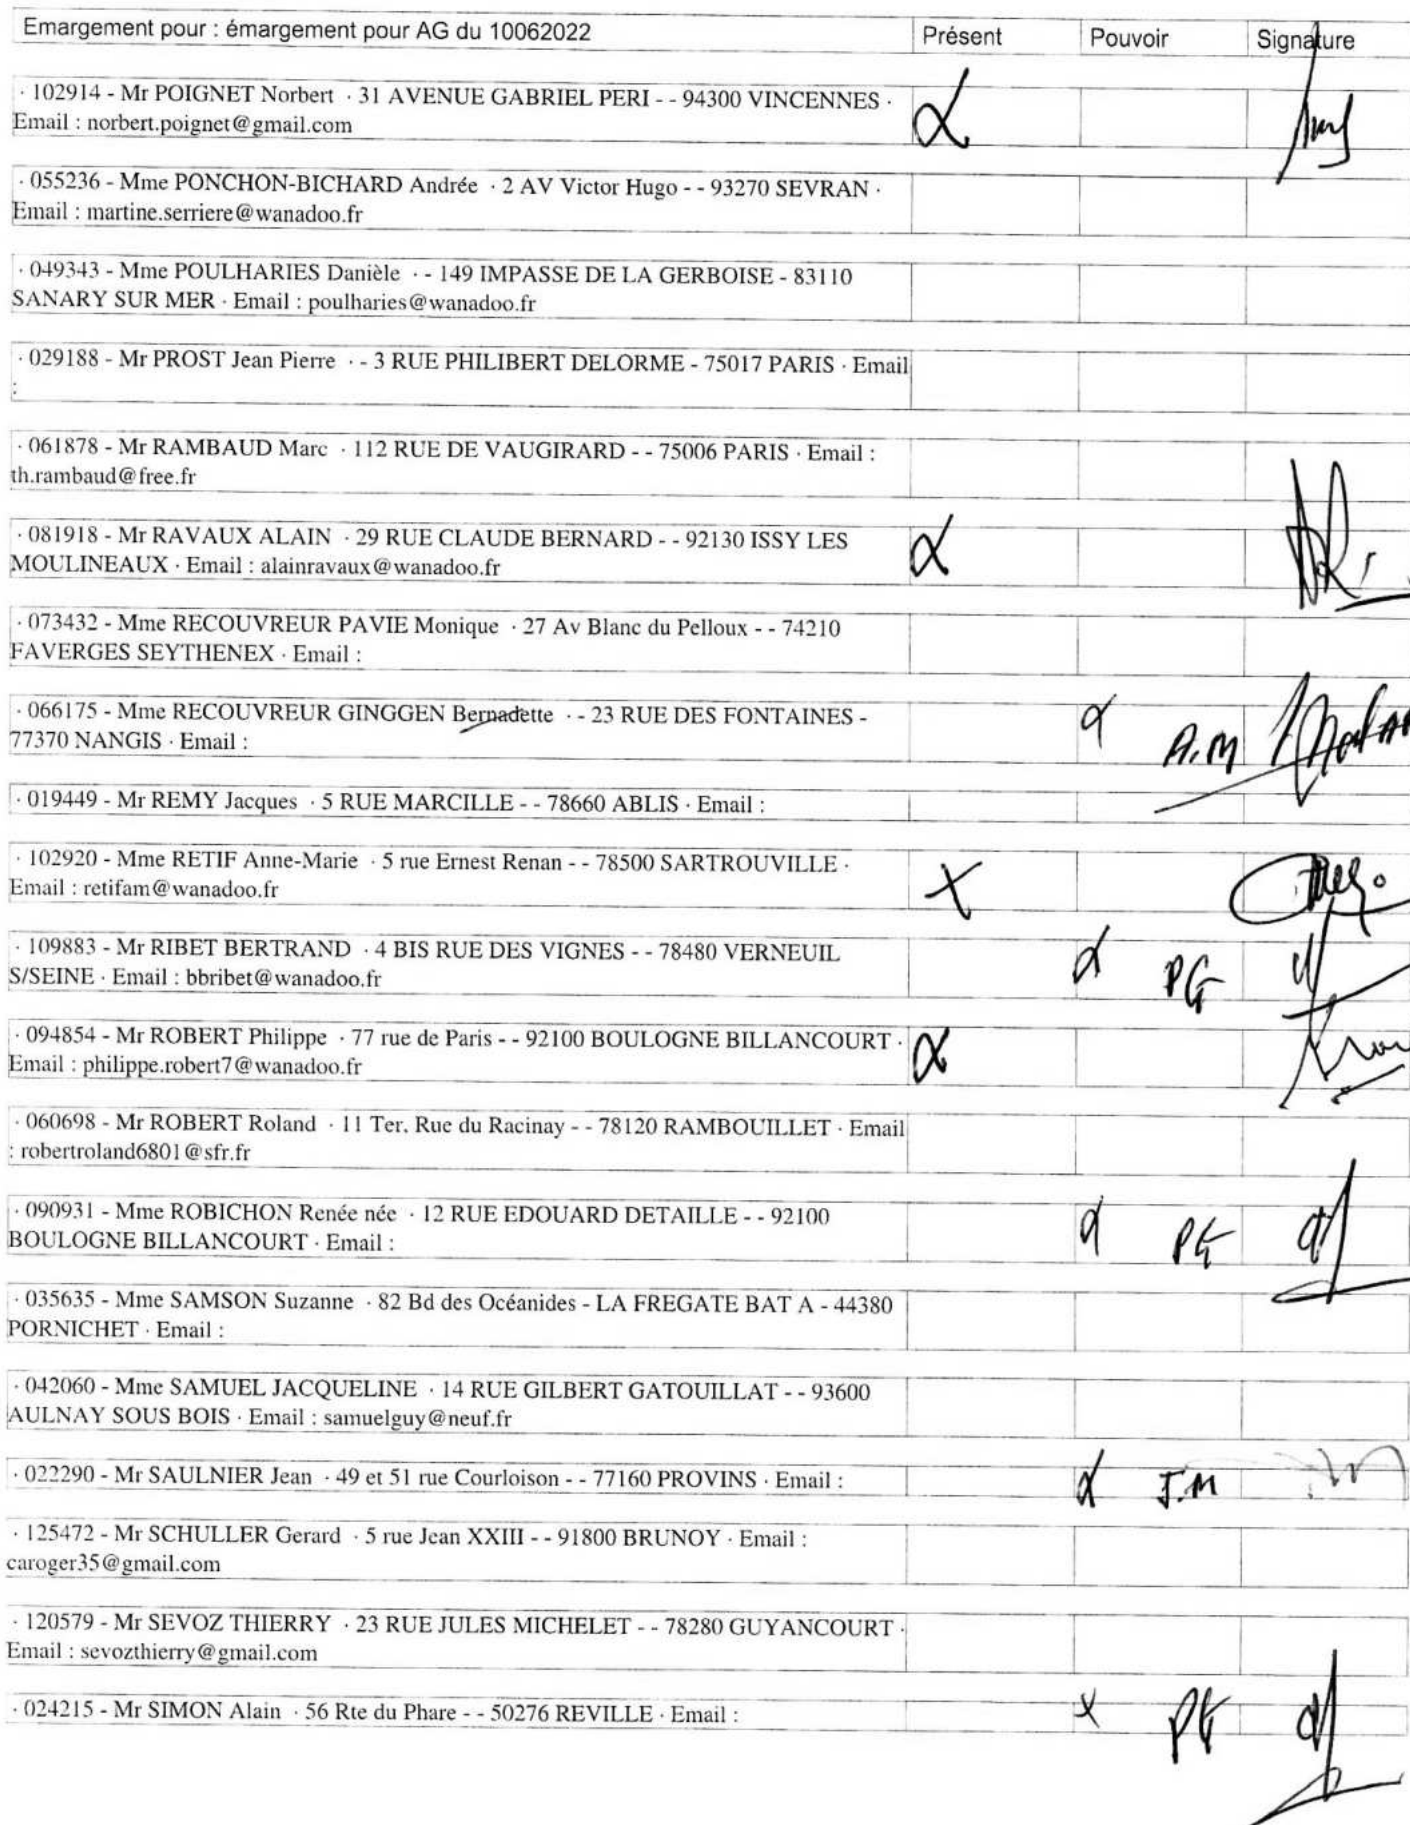 Emargement pour : émargement pour AG du 10062022 Présent Pouvoir Signature
· 102914 - Mr POIGNET Norbert · 31 AVENUE GABRIEL PERI - - 94300 VINCENNES ·
Email : norbert.poignet@gmail.com
· 055236 - Mme PONCHON-BICHARD Andrée · 2 AV Victor Hugo - - 93270 SEVRAN ·
Email : martine.serriere@wanadoo.fr
· 049343 - Mme POULHARIES Danièle · - 149 IMPASSE DE LA GERBOISE - 83110
SANARY SUR MER · Email : poulharies@wanadoo.fr
· 029188 - Mr PROST Jean Pierre · - 3 RUE PHILIBERT DELORME - 75017 PARIS · Email
:
· 061878 - Mr RAMBAUD Marc · 112 RUE DE VAUGIRARD - - 75006 PARIS · Email :
th.rambaud@free.fr
· 081918 - Mr RAVAUX ALAIN · 29 RUE CLAUDE BERNARD - - 92130 ISSY LES
MOULINEAUX · Email : alainravaux@wanadoo.fr
· 073432 - Mme RECOUVREUR PAVIE Monique · 27 Av Blanc du Pelloux - - 74210
FAVERGES SEYTHENEX · Email :
· 066175 - Mme RECOUVREUR GINGGEN Bernadette · - 23 RUE DES FONTAINES -
77370 NANGIS · Email :
A.M
· 019449 - Mr REMY Jacques · 5 RUE MARCILLE - - 78660 ABLIS · Email :
· 102920 - Mme RETIF Anne-Marie · 5 rue Ernest Renan - - 78500 SARTROUVILLE ·
Email : retifam@wanadoo.fr
X
· 109883 - Mr RIBET BERTRAND · 4 BIS RUE DES VIGNES - - 78480 VERNEUIL
S/SEINE · Email : bbribet@wanadoo.fr
PG
· 094854 - Mr ROBERT Philippe · 77 rue de Paris - - 92100 BOULOGNE BILLANCOURT ·
Email : philippe.robert7@wanadoo.fr
· 060698 - Mr ROBERT Roland · 11 Ter. Rue du Racinay - - 78120 RAMBOUILLET · Email
: robertroland6801@sfr.fr
· 090931 - Mme ROBICHON Renée née · 12 RUE EDOUARD DETAILLE - - 92100
BOULOGNE BILLANCOURT · Email :
PG
· 035635 - Mme SAMSON Suzanne · 82 Bd des Océanides - LA FREGATE BAT A - 44380
PORNICHET · Email :
· 042060 - Mme SAMUEL JACQUELINE · 14 RUE GILBERT GATOUILLAT - - 93600
AULNAY SOUS BOIS · Email : samuelguy@neuf.fr
· 022290 - Mr SAULNIER Jean · 49 et 51 rue Courloison - - 77160 PROVINS · Email : J.M
· 125472 - Mr SCHULLER Gerard · 5 rue Jean XXIII - - 91800 BRUNOY · Email :
caroger35@gmail.com
· 120579 - Mr SEVOZ THIERRY · 23 RUE JULES MICHELET - - 78280 GUYANCOURT ·
Email : sevozthierry@gmail.com
· 024215 - Mr SIMON Alain · 56 Rte du Phare - - 50276 REVILLE · Email : X PG